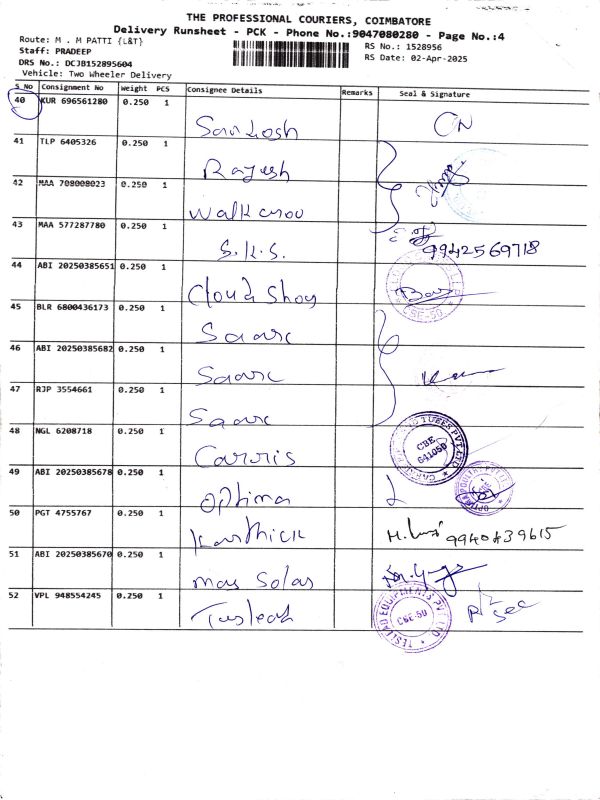 THE PROFESSIONAL COURIERS, COIMBATORE
Delivery Runsheet - PCK - Phone No.:9047080280 - Page No.:4
Route: M . M PATTI {L&T}
RS No.: 1528956
Staff: PRADEEP
RS Date: 02-Apr-2025
DRS No.: DCJB152895604
Vehicle: Two Wheeler Delivery
S No Consignment No Weight PCS Consignee Details Remarks Seal & Signature
40 KUR 696561280 0.250 1 Santosh
41 TLP 6405326 0.250 1 Rajesh
42 MAA 708008023 0.250 1 Walkaroo
43 MAA 577287780 0.250 1 S.K.S. 9942569718
44 ABI 20250385651 0.250 1 Cloud Shoy CBE-50
45 BLR 6800436173 0.250 1 Saarc
46 ABI 20250385682 0.250 1 Saarc
47 RJP 3554661 0.250 1 Saarc
48 NGL 6208718 0.250 1 Carris TUBES PVT LTD CBE 641050
49 ABI 20250385678 0.250 1 Optima
50 PGT 4755767 0.250 1 Karthick 9940439615
51 ABI 20250385670 0.250 1 Mas Solar
52 VPL 948554245 0.250 1 Teslead TESLEAD EQUIPMENTS PVT LTD CBE-50